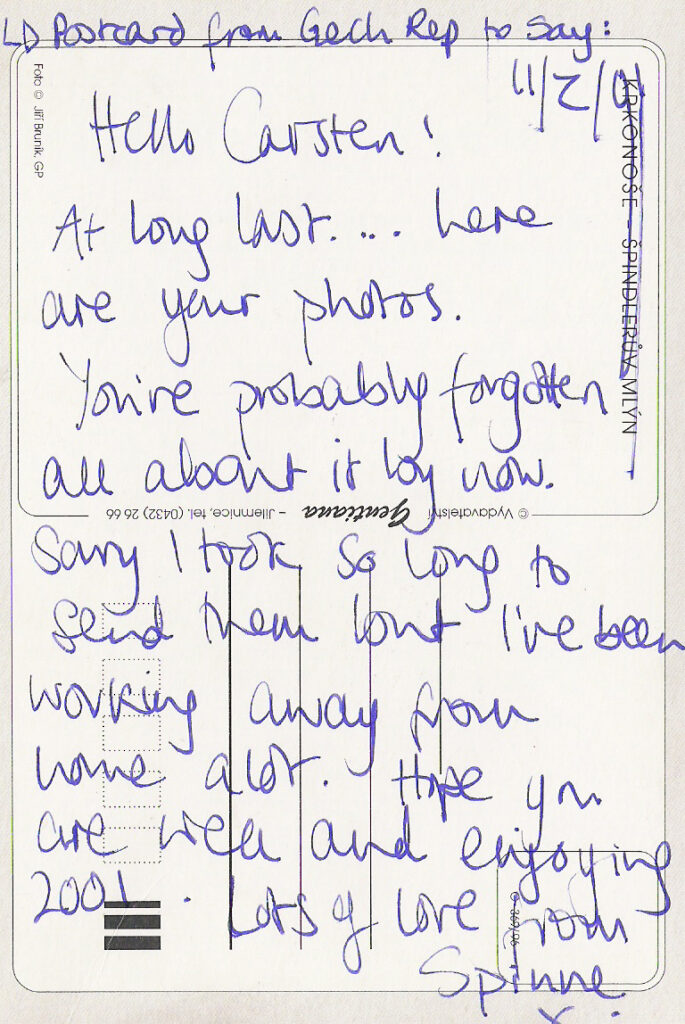 LD Postcard from Czech Rep to say:
11/2/01
Foto © Jiří Bruník, GP
KRKONOŠE – ŠPINDLERŮV MLÝN
Hello Carsten!
At long last.... here
are your photos.
You're probably forgotten
all about it by now.
© Vydavatelství Gentiana – Jilemnice, tel. (0432) 26 66
Sorry I took so long to
send them but I've been
working away from
home alot. Hope you
are well and enjoying
2001. Lots of love from
Spinne.
x